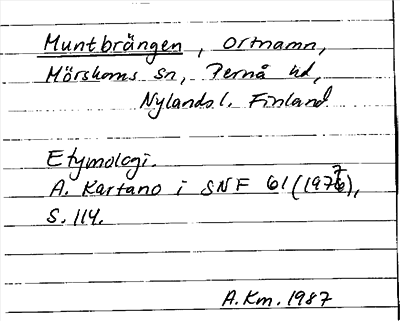 Muntbrängen, ortnamn,
Mörskoms sn, Pernå hd,
Nylands l. Finland
Etymologi.
A. Kartano i SNF 61 (1977),
S. 114.
A.Km. 1987